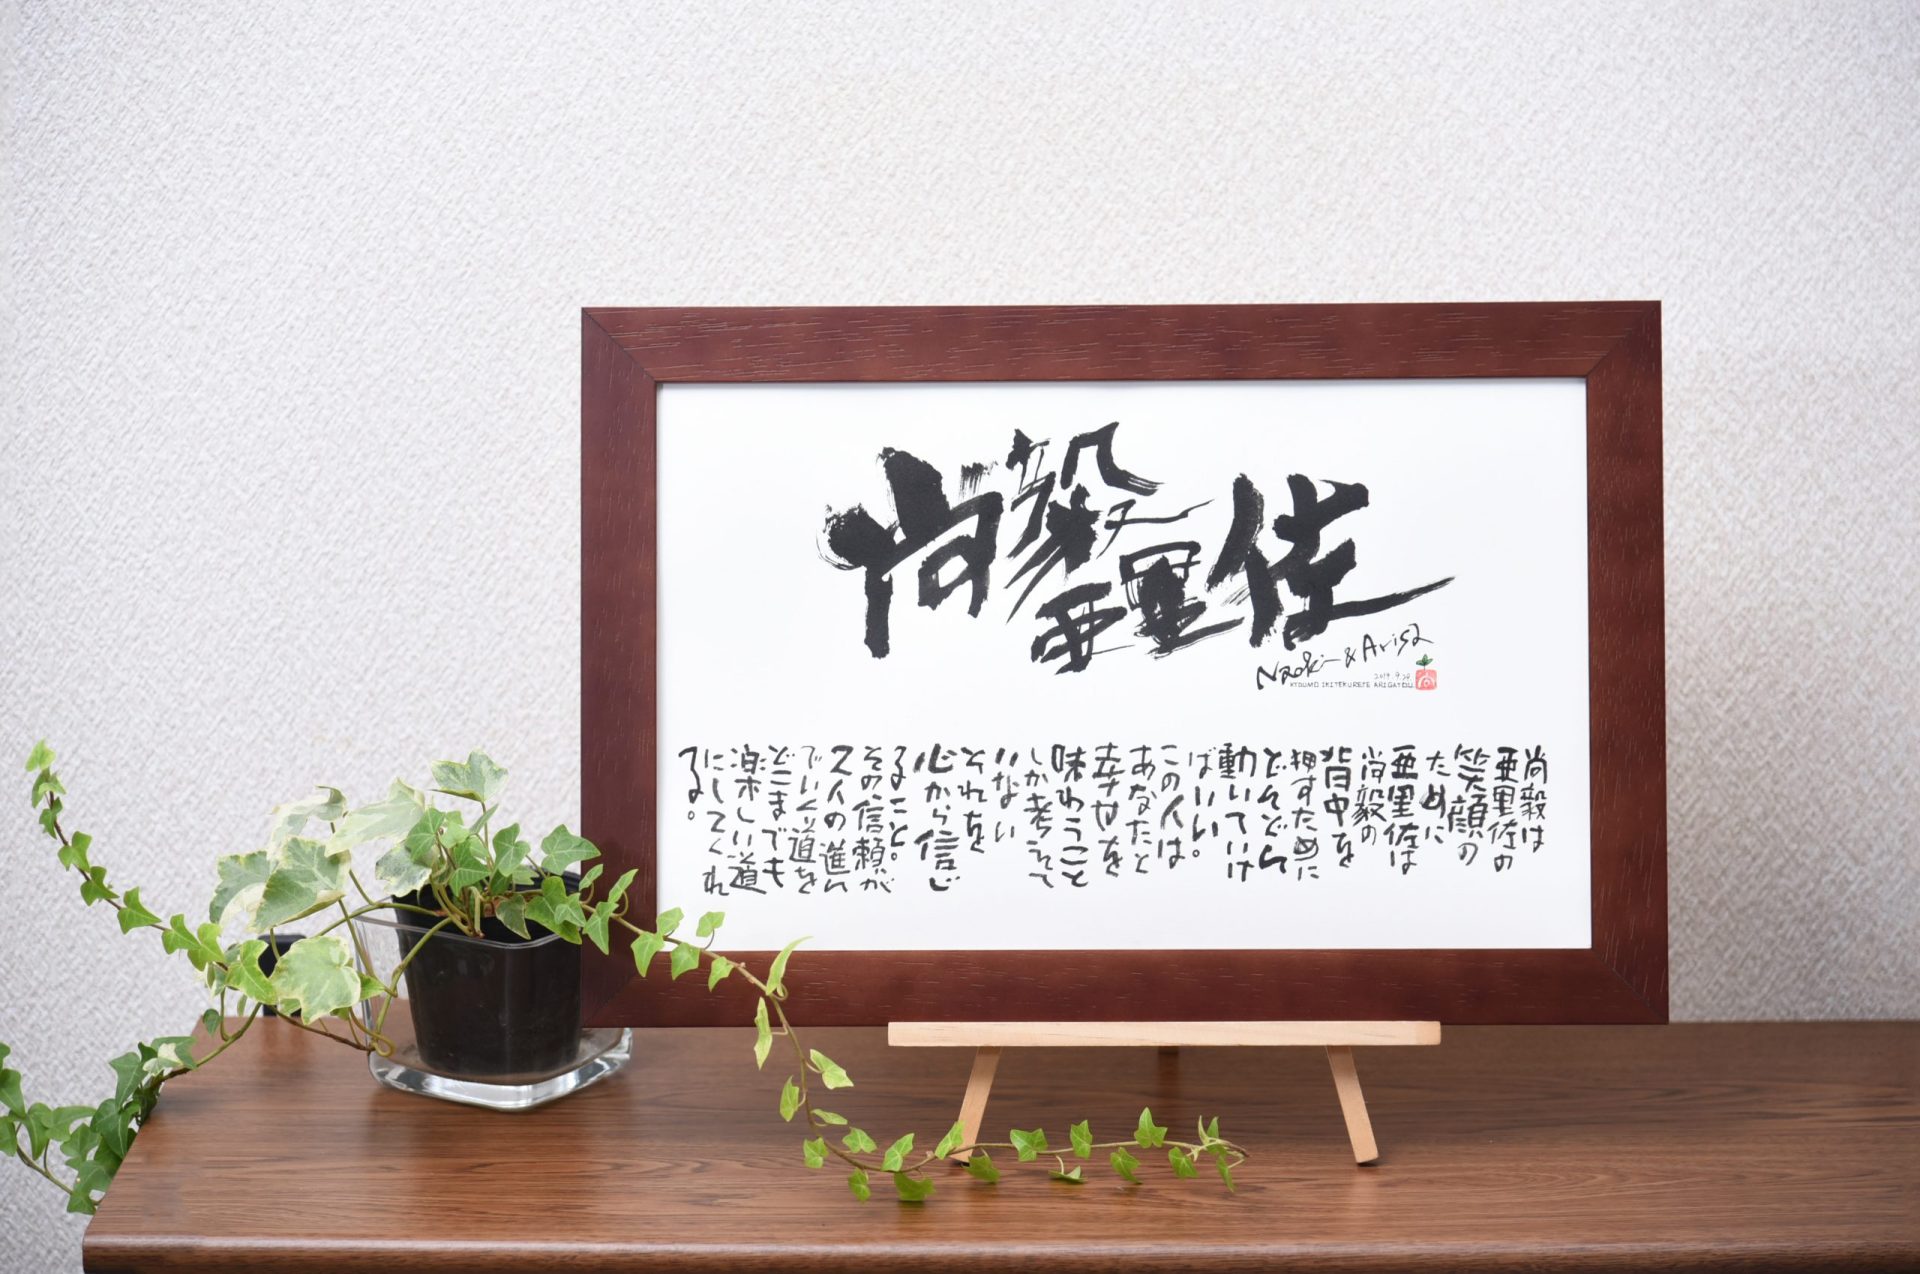 尚毅
亜里佐
Naoki & Arisa
2019.9.29
KYOUMO IKITEKURETE ARIGATOU
尚毅は
亜里佐の
笑顔の
ために
亜里佐は
尚毅の
背中を
押すために
どんどん
動いていけ
ばいい。
この人は
あなたと
幸せを
味わうこと
しか考えて
いない
それを
心から信じ
ること。
その信頼が
2人の進ん
でいく道を
どこまでも
楽しい道
にしてくれ
てる。